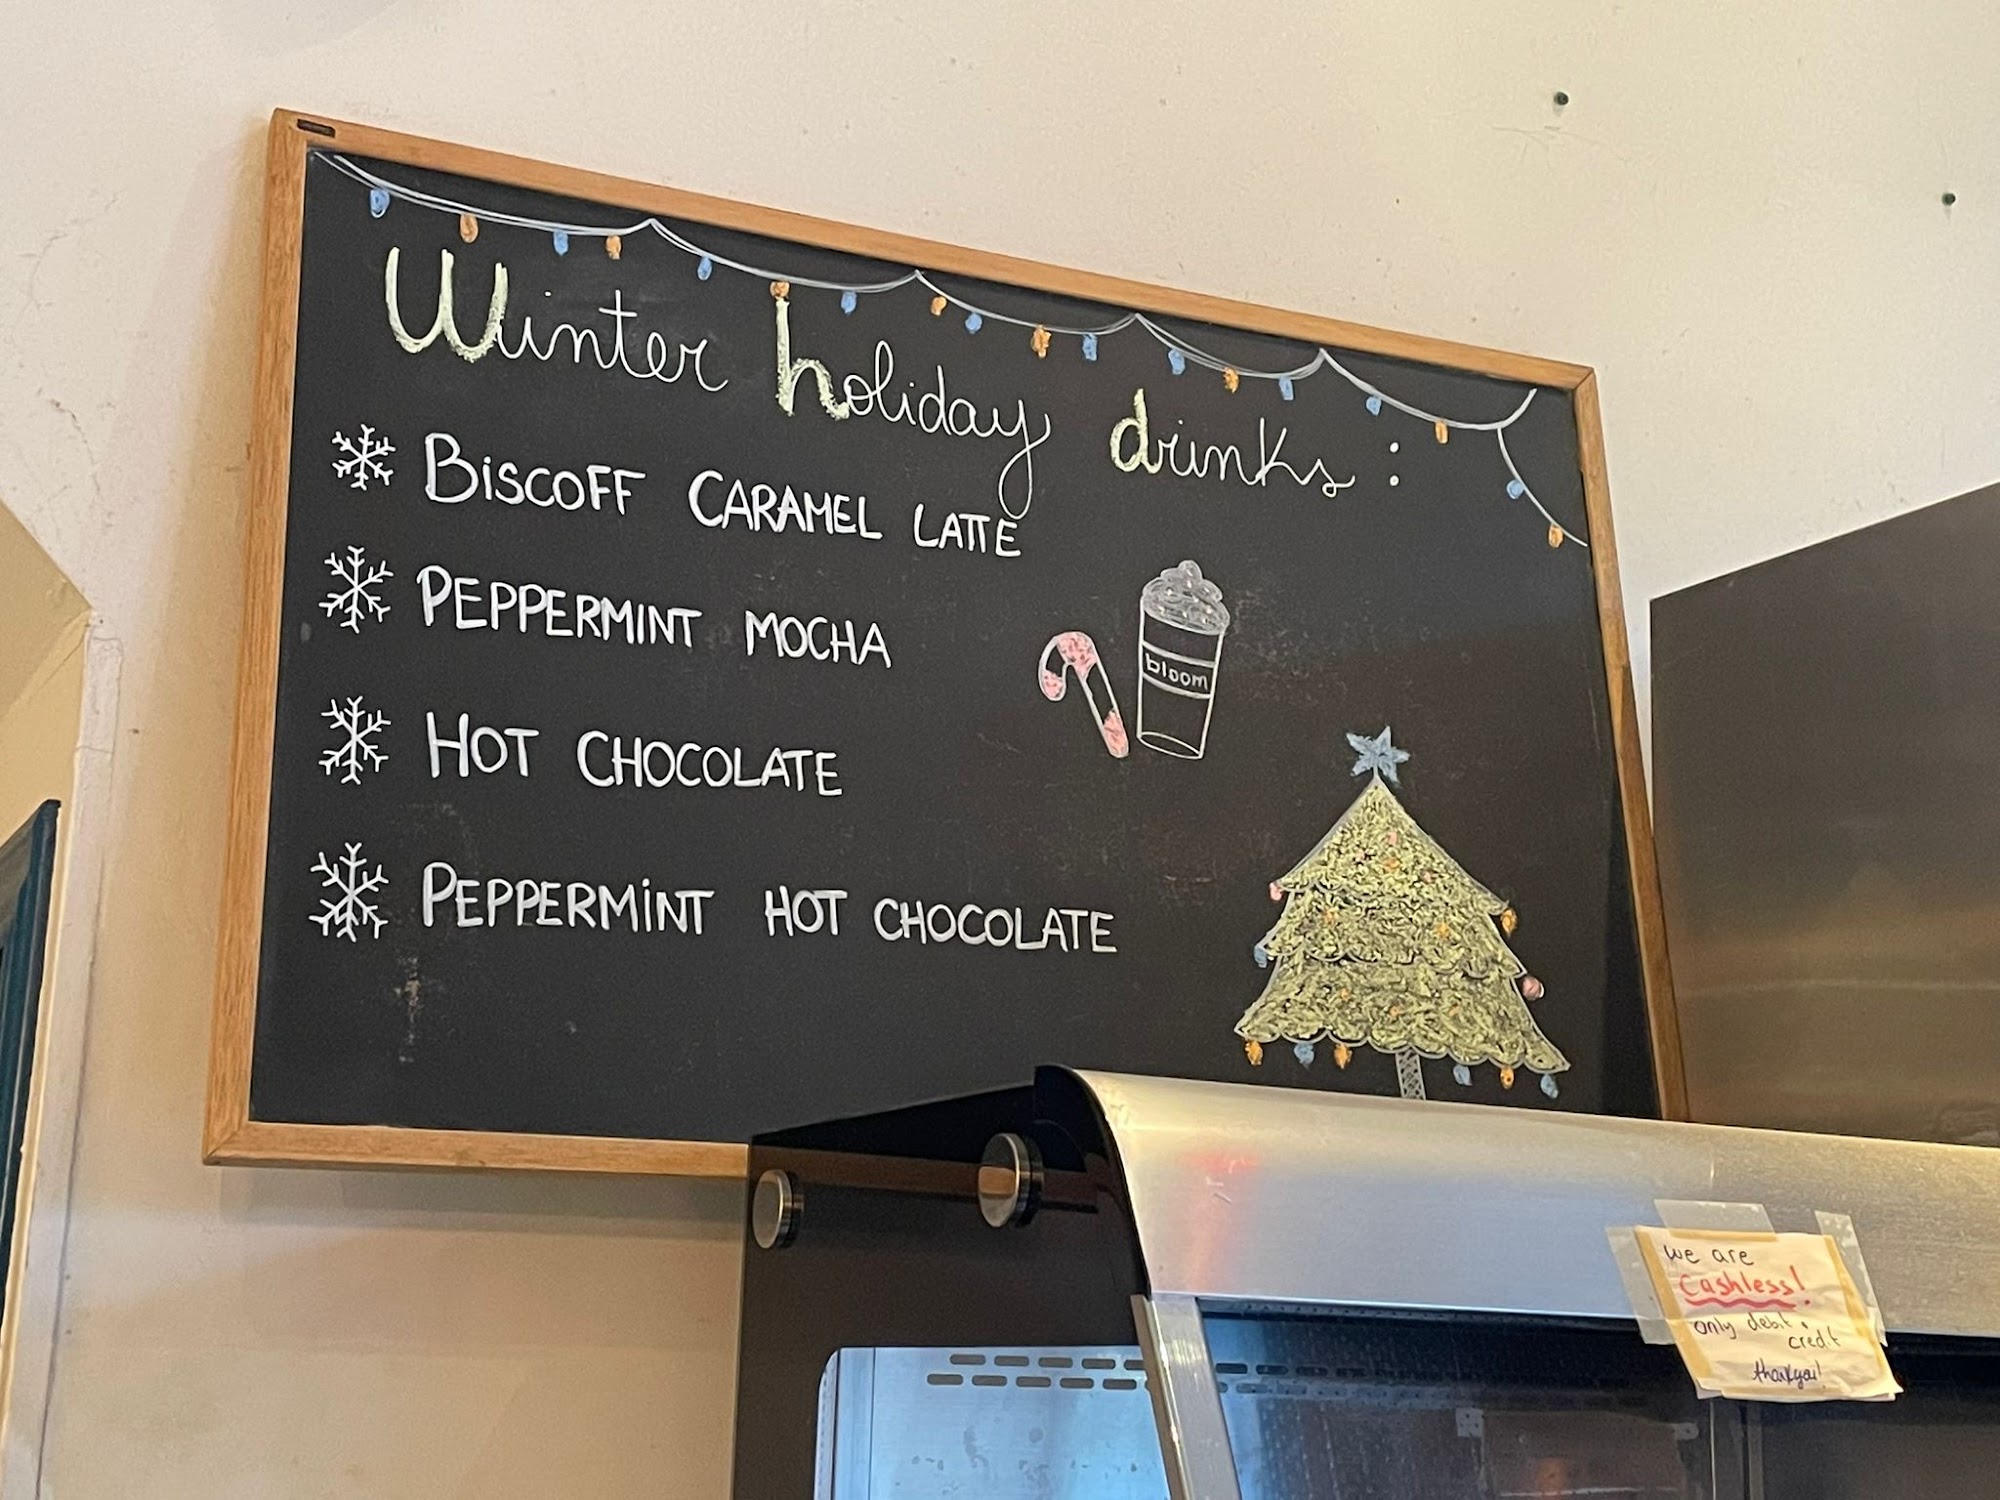 Winter holiday drinks:
BISCOFF CARAMEL LATTE
PEPPERMINT MOCHA
HOT CHOCOLATE
PEPPERMINT HOT CHOCOLATE
bloom
we are
cashless!
only debit &
credit
thankyou!